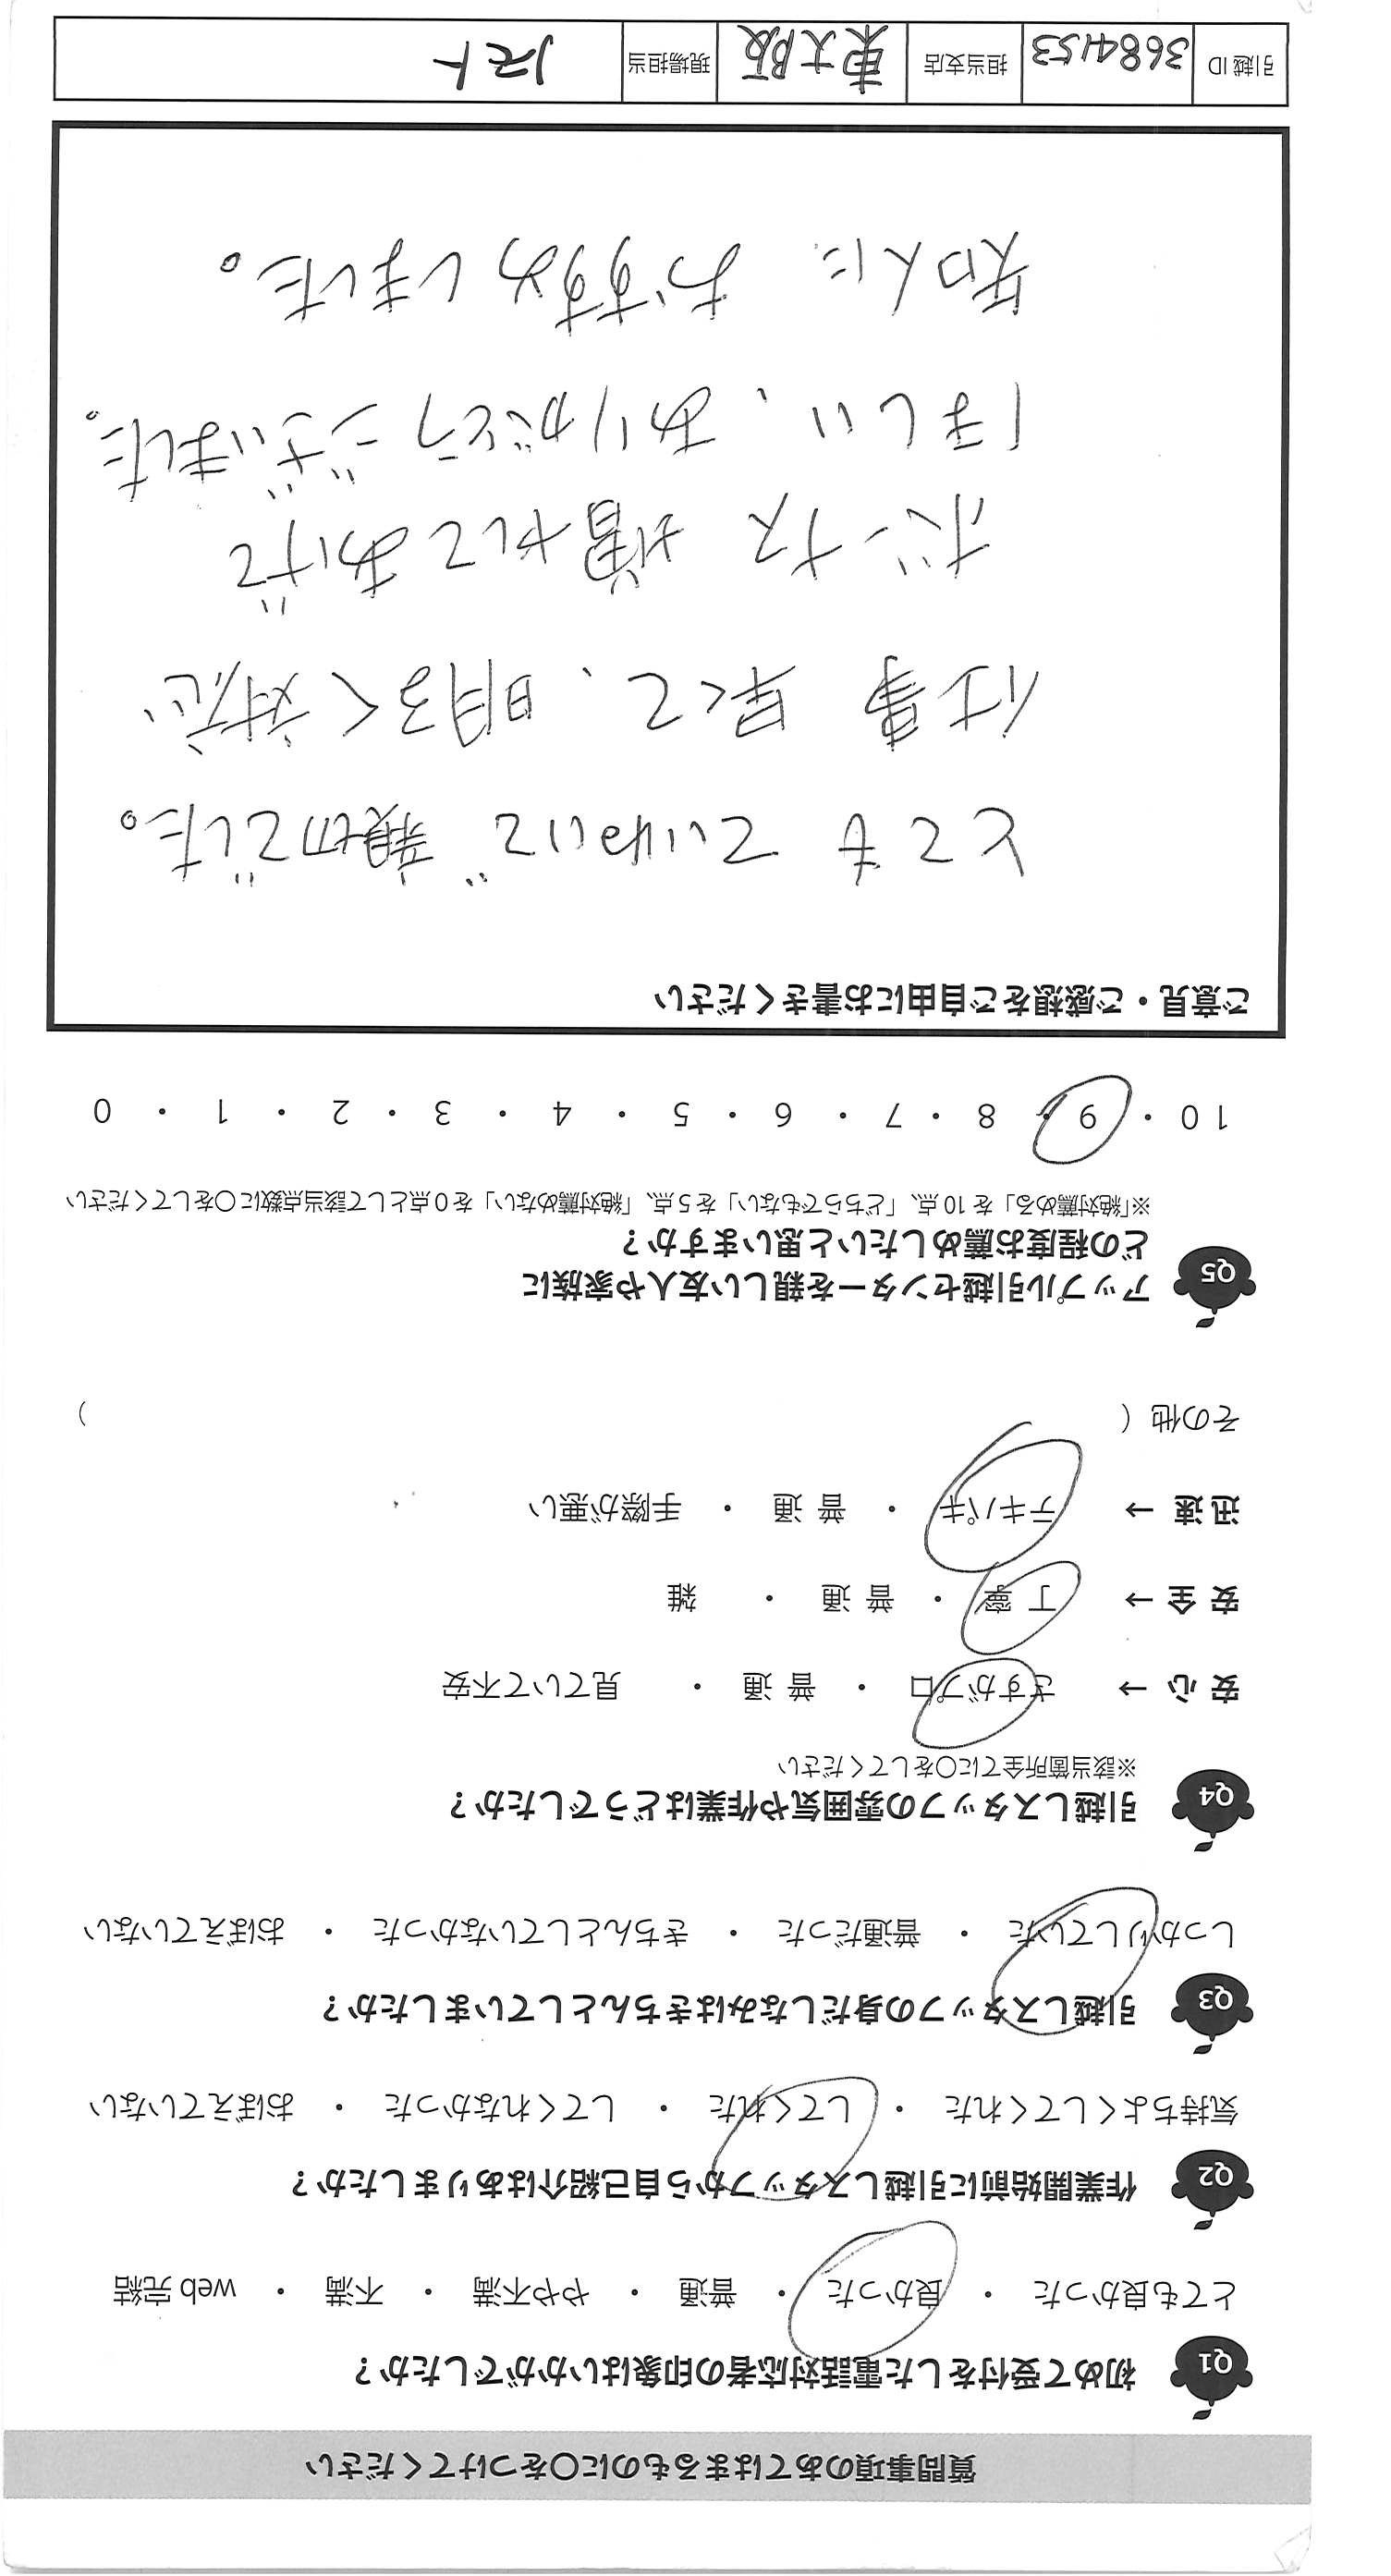 質問事項のあてはまるものに〇をつけてください
Q1 初めて受付をした電話対応者の印象はいかがでしたか？
とても良かった ・ 良かった ・ 普通 ・ やや不満 ・ 不満 ・ web 完結
Q2 作業開始前に引越しスタッフから自己紹介はありましたか？
気持ちよくしてくれた ・ してくれた ・ してくれなかった ・ おぼえていない
Q3 引越しスタッフの身だしなみはきちんとしていましたか？
しっかりしていた ・ 普通だった ・ きちんとしていなかった ・ おぼえていない
Q4 引越しスタッフの雰囲気や作業はどうでしたか？
※該当箇所全てに〇をしてください
安 心 → さすがプロ ・ 普 通 ・ 見ていて不安
安 全 → 丁 寧 ・ 普 通 ・ 雑
迅 速 → テキパキ ・ 普 通 ・ 手際が悪い
その他（ ）
Q5 アップル引越センターを親しい友人や家族に
どの程度お薦めしたいと思いますか？
※「絶対薦める」を 10 点、「どちらでもない」を 5 点、「絶対薦めない」を 0 点として該当点数に〇をしてください
10 ・ 9 ・ 8 ・ 7 ・ 6 ・ 5 ・ 4 ・ 3 ・ 2 ・ 1 ・ 0
ご意見・ご感想をご自由にお書きください
とても ていねいで 親切でした。
仕事 早くて、明るく対応
ボーナス 増やしてあげて
ほしい、ありがとうございました。
知人に おすすめしました。
引越 ID 3684153 担当支店 東大阪 現場担当